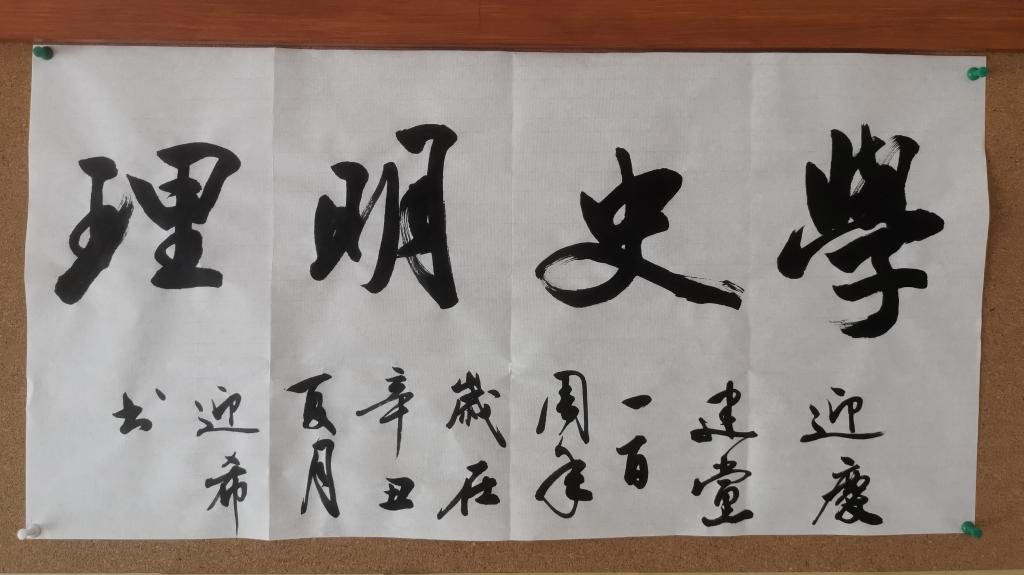 學史明理
迎慶
建党
一百
周年
歲在
辛丑
夏月
迎希
书